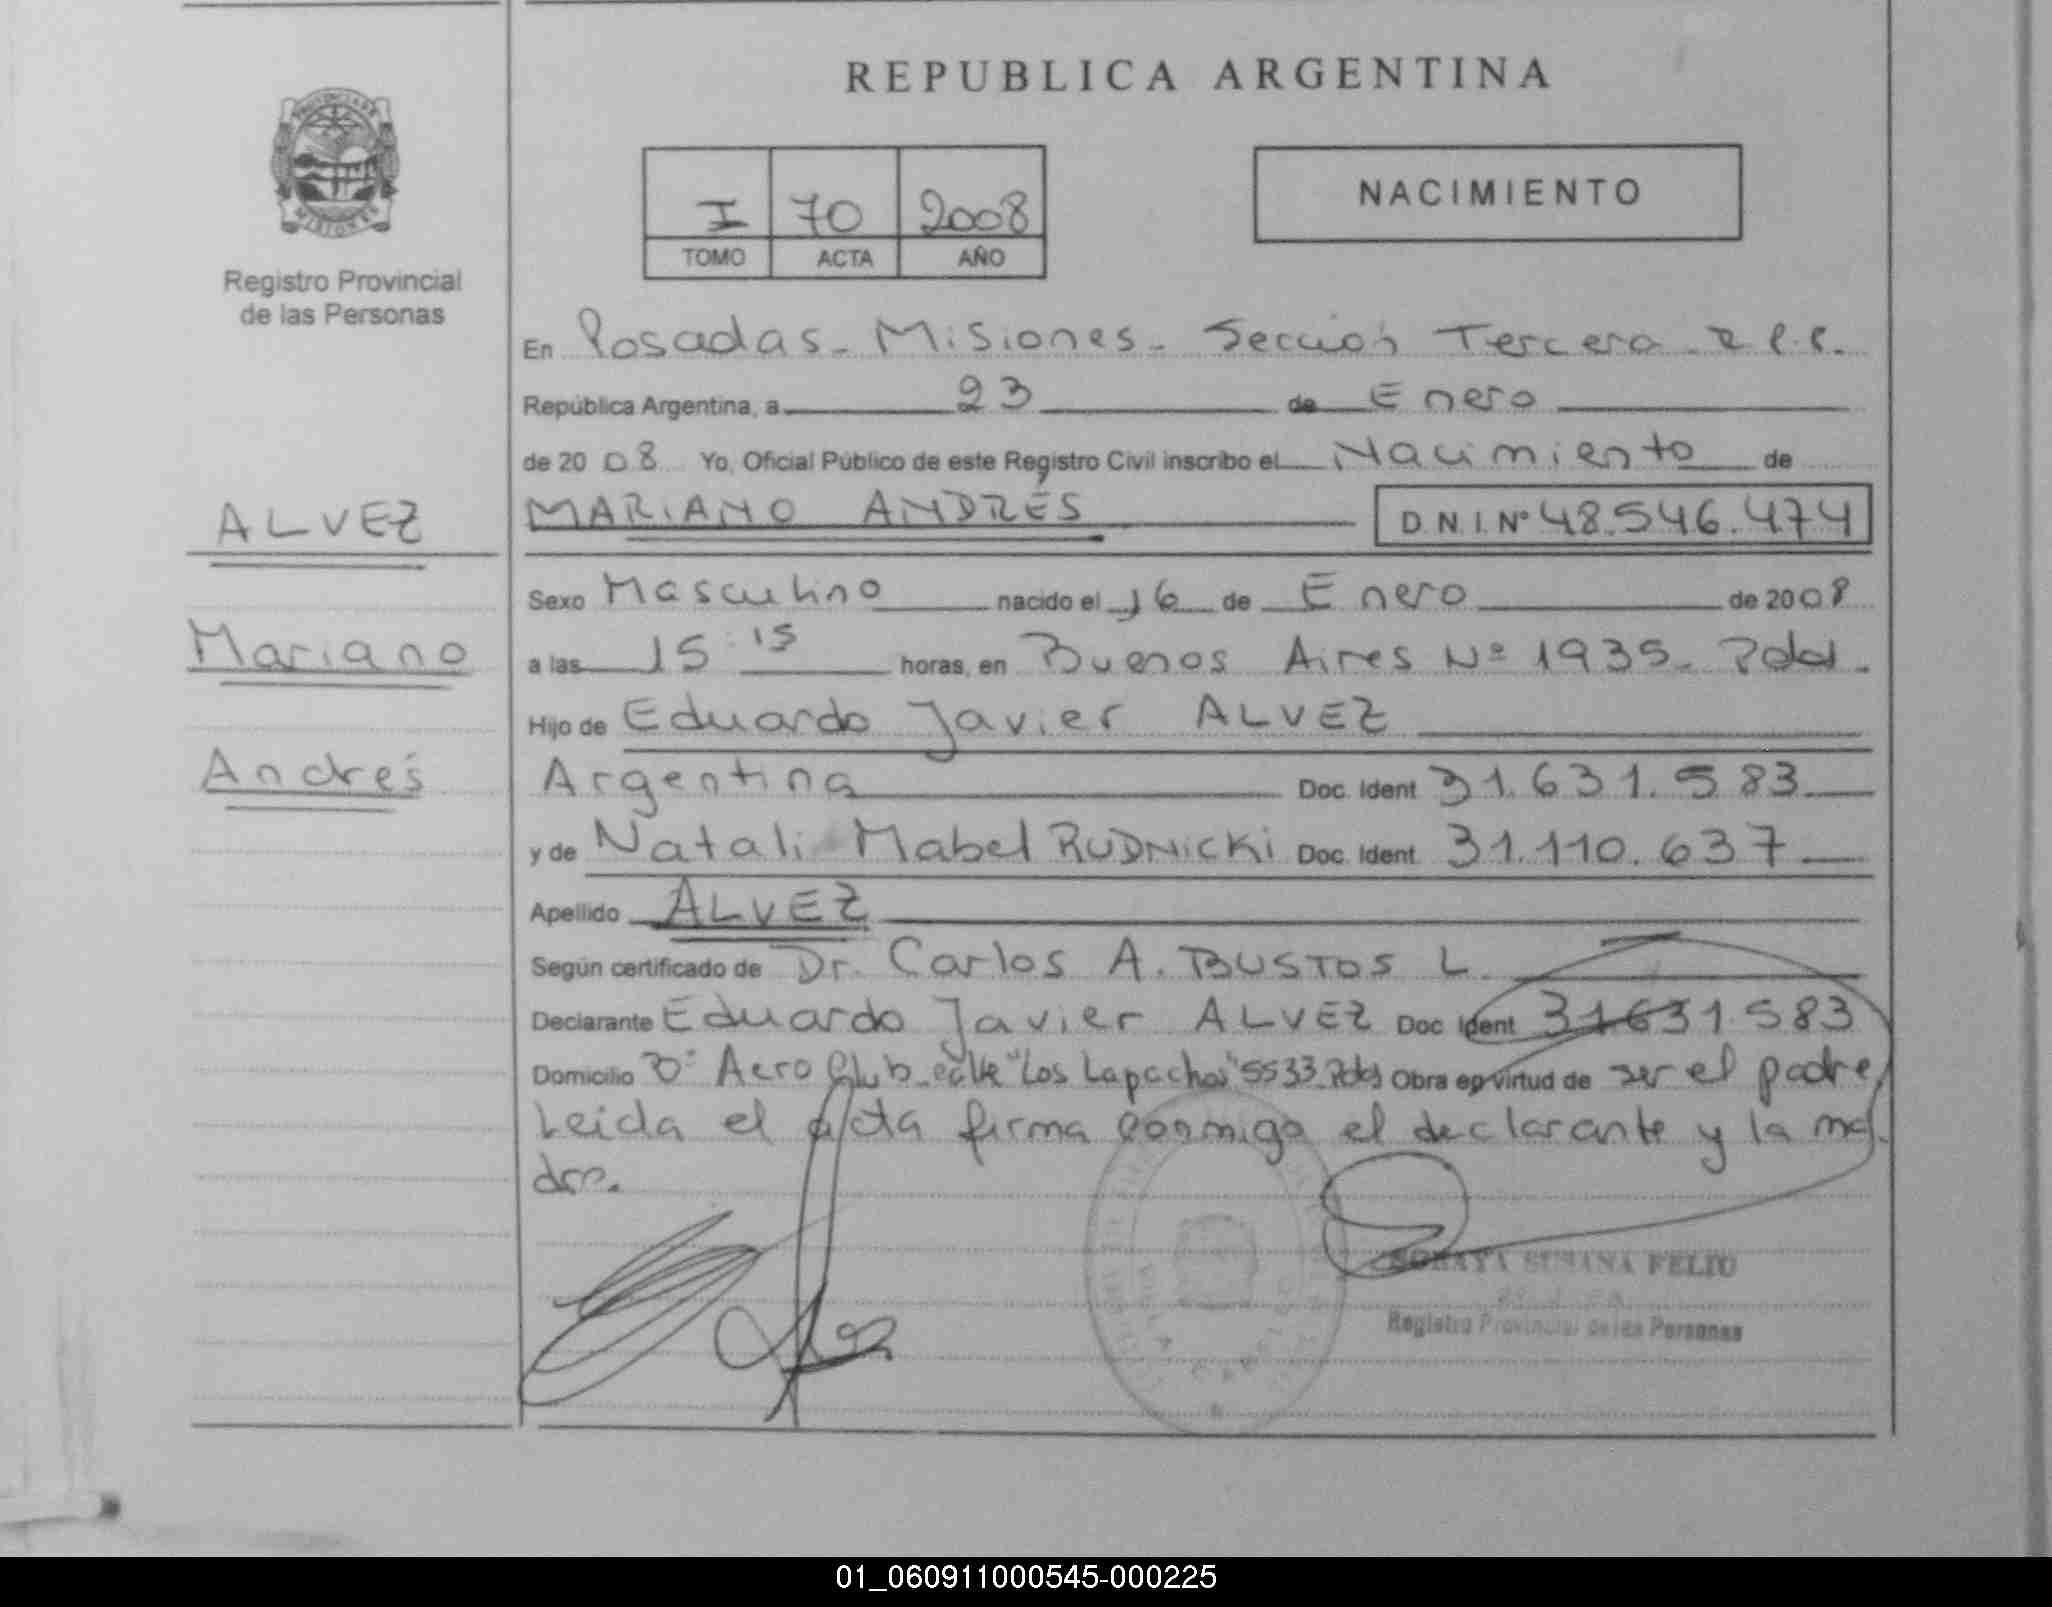 REPUBLICA ARGENTINA
I 70 2008
TOMO ACTA AÑO
NACIMIENTO
Registro Provincial
de las Personas
ALVEZ
Mariano
Andrés
En Posadas - Misiones - Sección Tercera R.P.P.
República Argentina, a 23 de Enero
de 2008 Yo, Oficial Público de este Registro Civil inscribo el Nacimiento de
MARIANO ANDRÉS D.N.I. Nº 48.546.474
Sexo Masculino nacido el 16 de Enero de 2008
a las 15:15 horas, en Buenos Aires Nº 1935 - Pdas.
Hijo de Eduardo Javier ALVEZ
Argentina Doc. Ident 31.631.583
y de Natali Mabel RUDNICKI Doc. Ident. 31.110.637
Apellido ALVEZ
Según certificado de Dr. Carlos A. BUSTOS L.
Declarante Eduardo Javier ALVEZ Doc Ident 31631.583
Domicilio Bº Aero Club calle "Los Lapachos" 5533 Pdas Obra en virtud de ser el padre
Leida el acta firma conmigo el declarante y la ma-
dre.
SORAYA SUSANA FELIU
Registro Provincial de las Personas
01_060911000545-000225